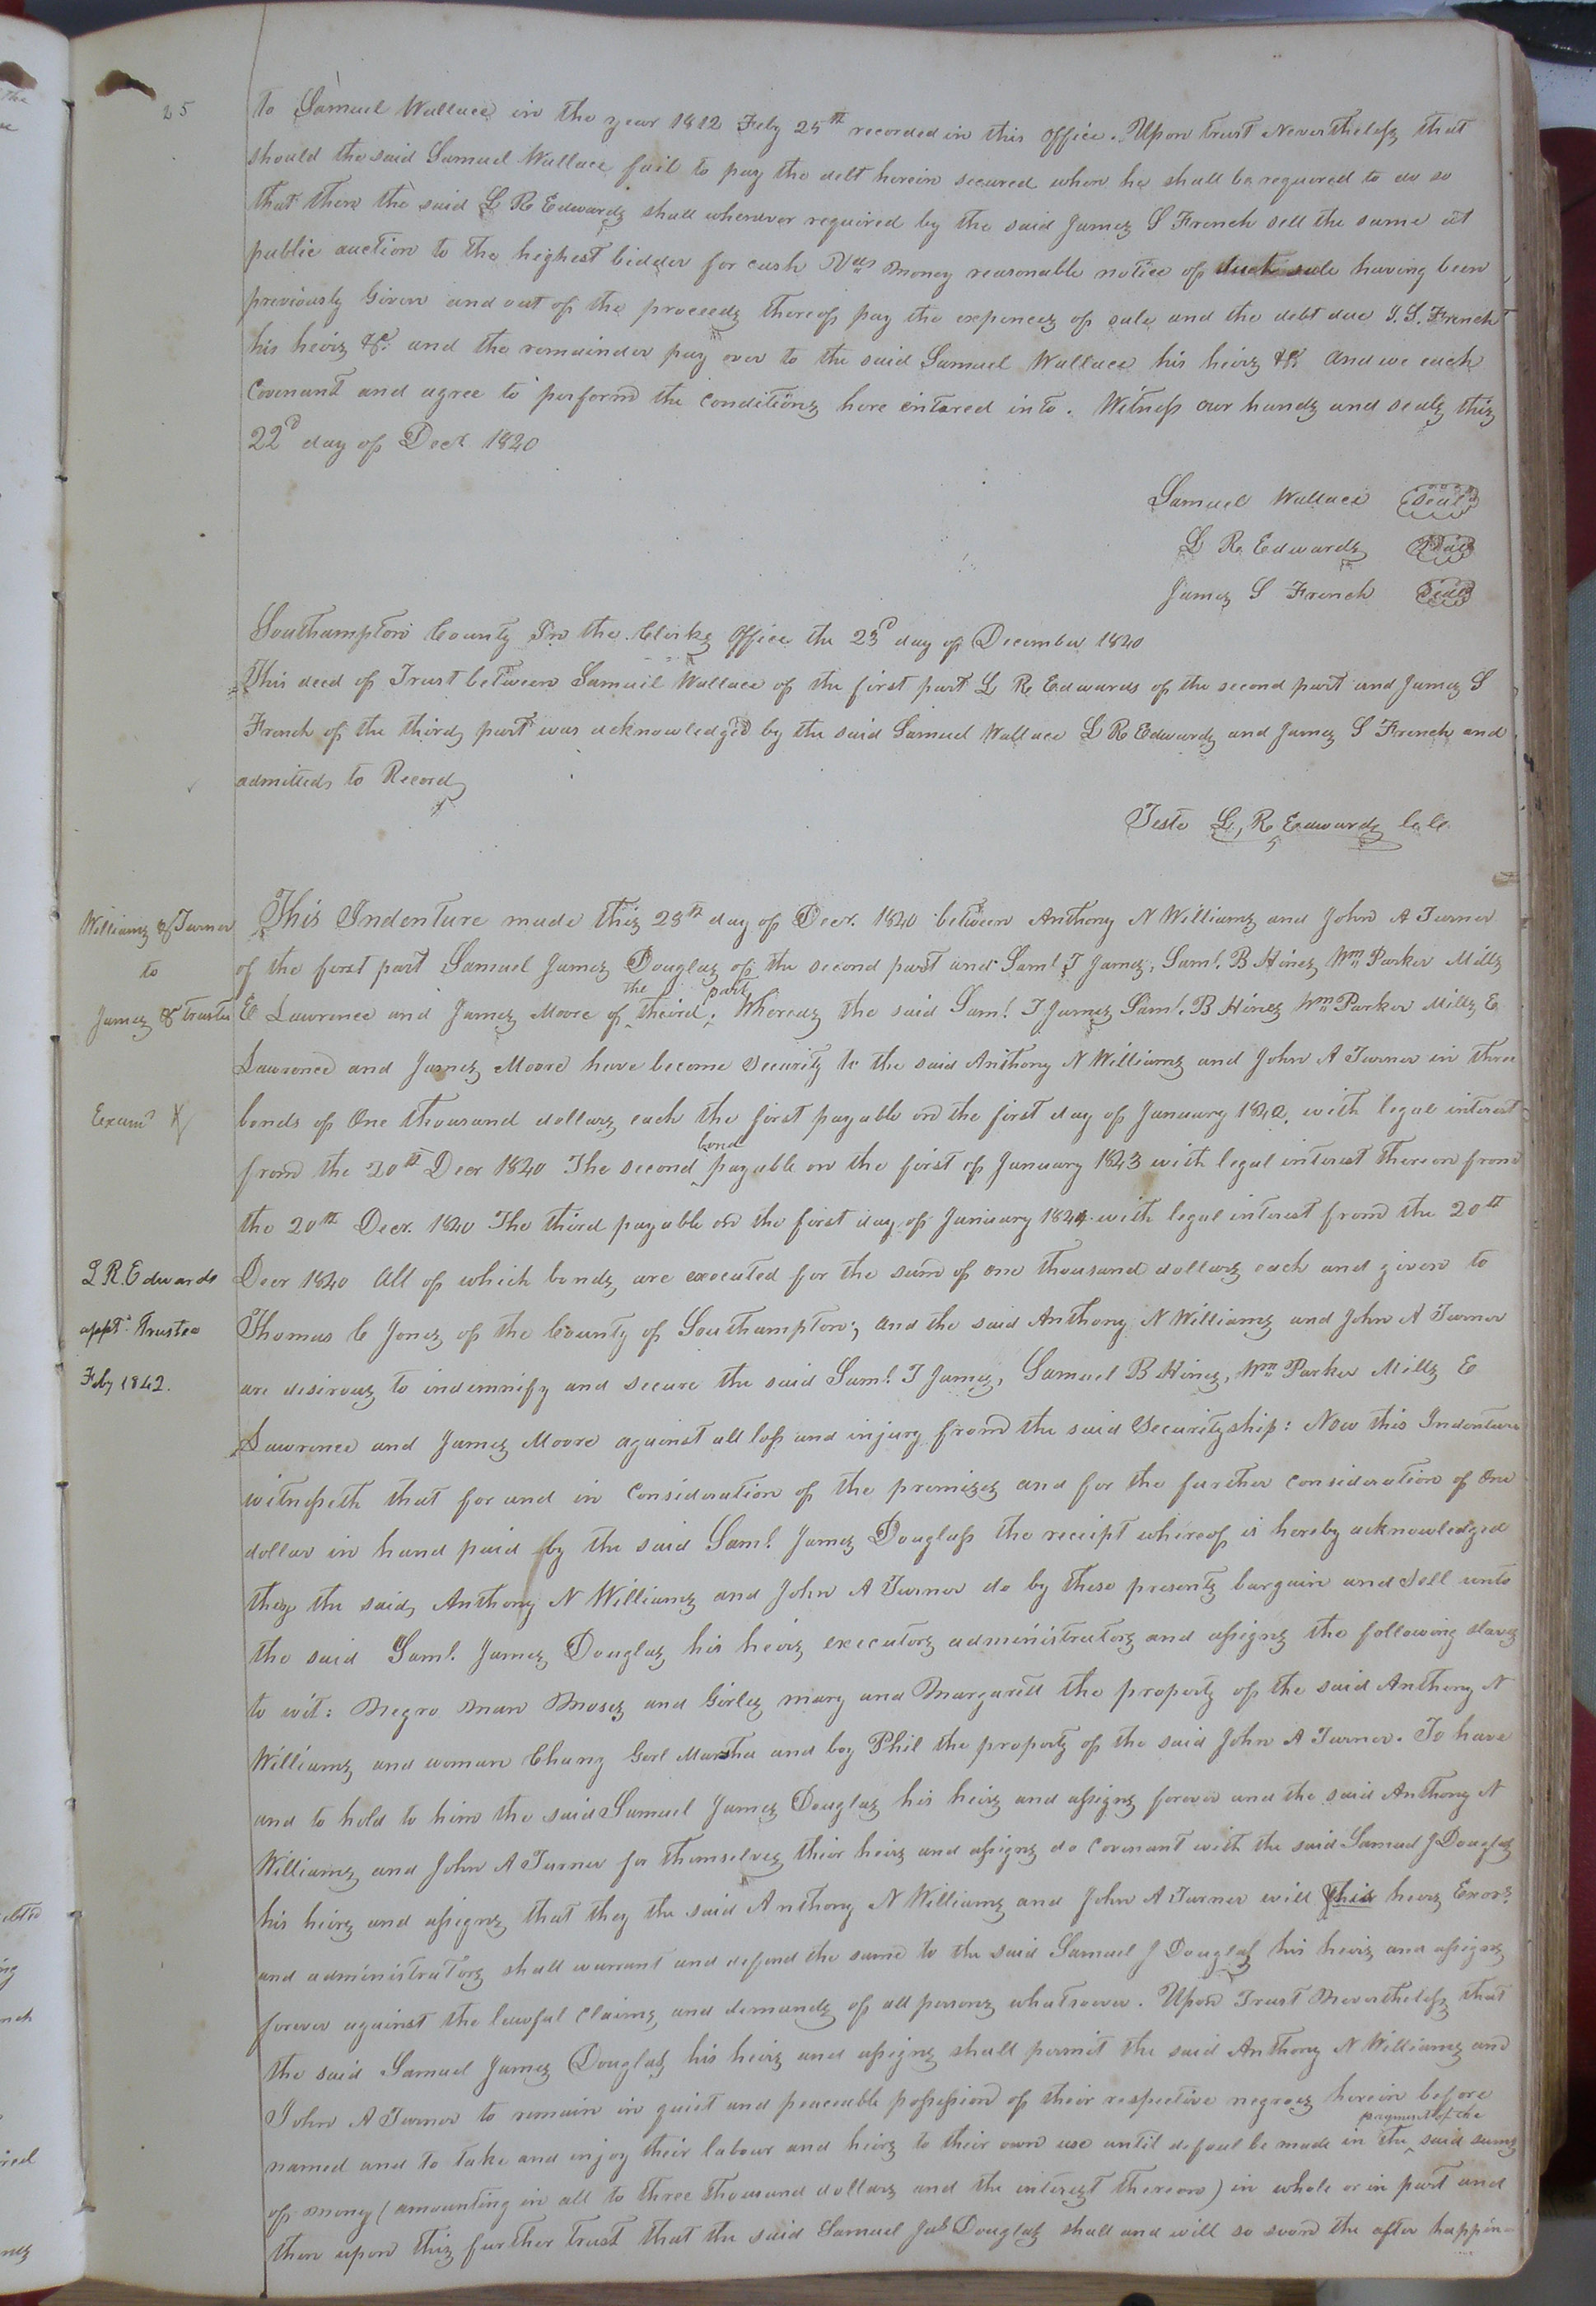 25
to Samuel Wallace in the year 1812 Feby 25th recorded in this Office. Upon trust Nevertheless that
should the said Samuel Wallace fail to pay the debt herein secured when he shall be requered to do so
that then the said L R Edwards shall whenever required by the said James S French sell the same at
public auction to the highest bidder for cash Va money reasonable notice of such sale having been
previously Given and out of the proceeds thereof pay the expences of sale and the debt due J. S. French
his heirs &c and the remainder pay over to the said Samuel Wallace his heirs &c And we each
Covenant and agree to perform the conditions here entered into. Witness our hands and seals this
22d day of Decr 1840
Samuel Wallace Seal
L R Edwards Seal
James S French Seal
Southampton County In the Clerks Office the 23d day of December 1840
This deed of Trust between Samuel Wallace of the first part L R Edwards of the second part and James S
French of the third part was acknowledged by the said Samuel Wallace L R Edwards and James S French and
admitted to Record
Teste L. R. Edwards C. C.
Williams & Turner
to
James & trustee
Examd
L. R. Edwards
appt. Trustee
Feby 1842.
This Indenture made this 28th day of Decr. 1840 between Anthony N Williams and John A Turner
of the first part Samuel James Douglas of the second part and Saml. T James, Saml. B Hines Wm Parker Mills
E Lawrence and James Moore of the theird part. Whereas the said Saml. T James Saml. B Hines Wm Parker Mills E
Lawrence and James Moore have become security to the said Anthony N Williams and John A Turner in three
bonds of One thousand dollars each the first payable on the first day of January 1842, with legal interest
from the 20th Decr 1840 The second bond payable on the first of January 1843 with legal interest thereon from
the 20th Decr. 1840 The third payable on the first day of January 1844 with legal interest from the 20th
Decr 1840 All of which bonds are executed for the sum of one thousand dollars each and given to
Thomas C Jones of the County of Southampton; And the said Anthony N Williams and John A Turner
are desirous to indemnify and secure the said Saml. T James, Samuel B Hines, Wm Parker Mills E
Lawrence and James Moore against all loss and injury from the said Securityship: Now this Indenture
witnesseth that for and in Consideration of the premises and for the further consideration of One
dollar in hand paid by the said Saml. James Douglass the receipt whereof is hereby acknowledged
they the said Anthony N Williams and John A Turner do by these presents bargain and sell unto
the said Saml. James Douglas his heirs executors administrators and assigns the following slaves
to wit: Negro man Moses and Girles mary and Margarett the property of the said Anthony N
Williams and woman Chany Gerl Martha and boy Phil the property of the said John A Turner. To have
and to hold to him the said Samuel James Douglas his heirs and assigns forever and the said Anthony N
Williams and John A Turner for themselves their heirs and assigns do covenant with the said Samuel J Douglas
his heirs and assigns that they the said Anthony N Williams and John A Turner will heirs Exors.
and administrators shall warrant and defend the same to the said Samuel J Douglass his heirs and assigns
forever against the lawful claims and demands of all persons whatsoever. Upon Trust Nevertheless that
the said Samuel James Douglass his heirs and assigns shall permit the said Anthony N Williams and
John A Turner to remain in quiet and peaceable possession of their respective negroes herein before
named and to take and enjoy their labour and heirs to their own use until defaul be made in the payment of the said sums
of money (amounting in all to three thousand dollars and the interest thereon) in whole or in part and
then upon this further trust that the said Samuel Jas Douglass shall and will so soon the after happin-